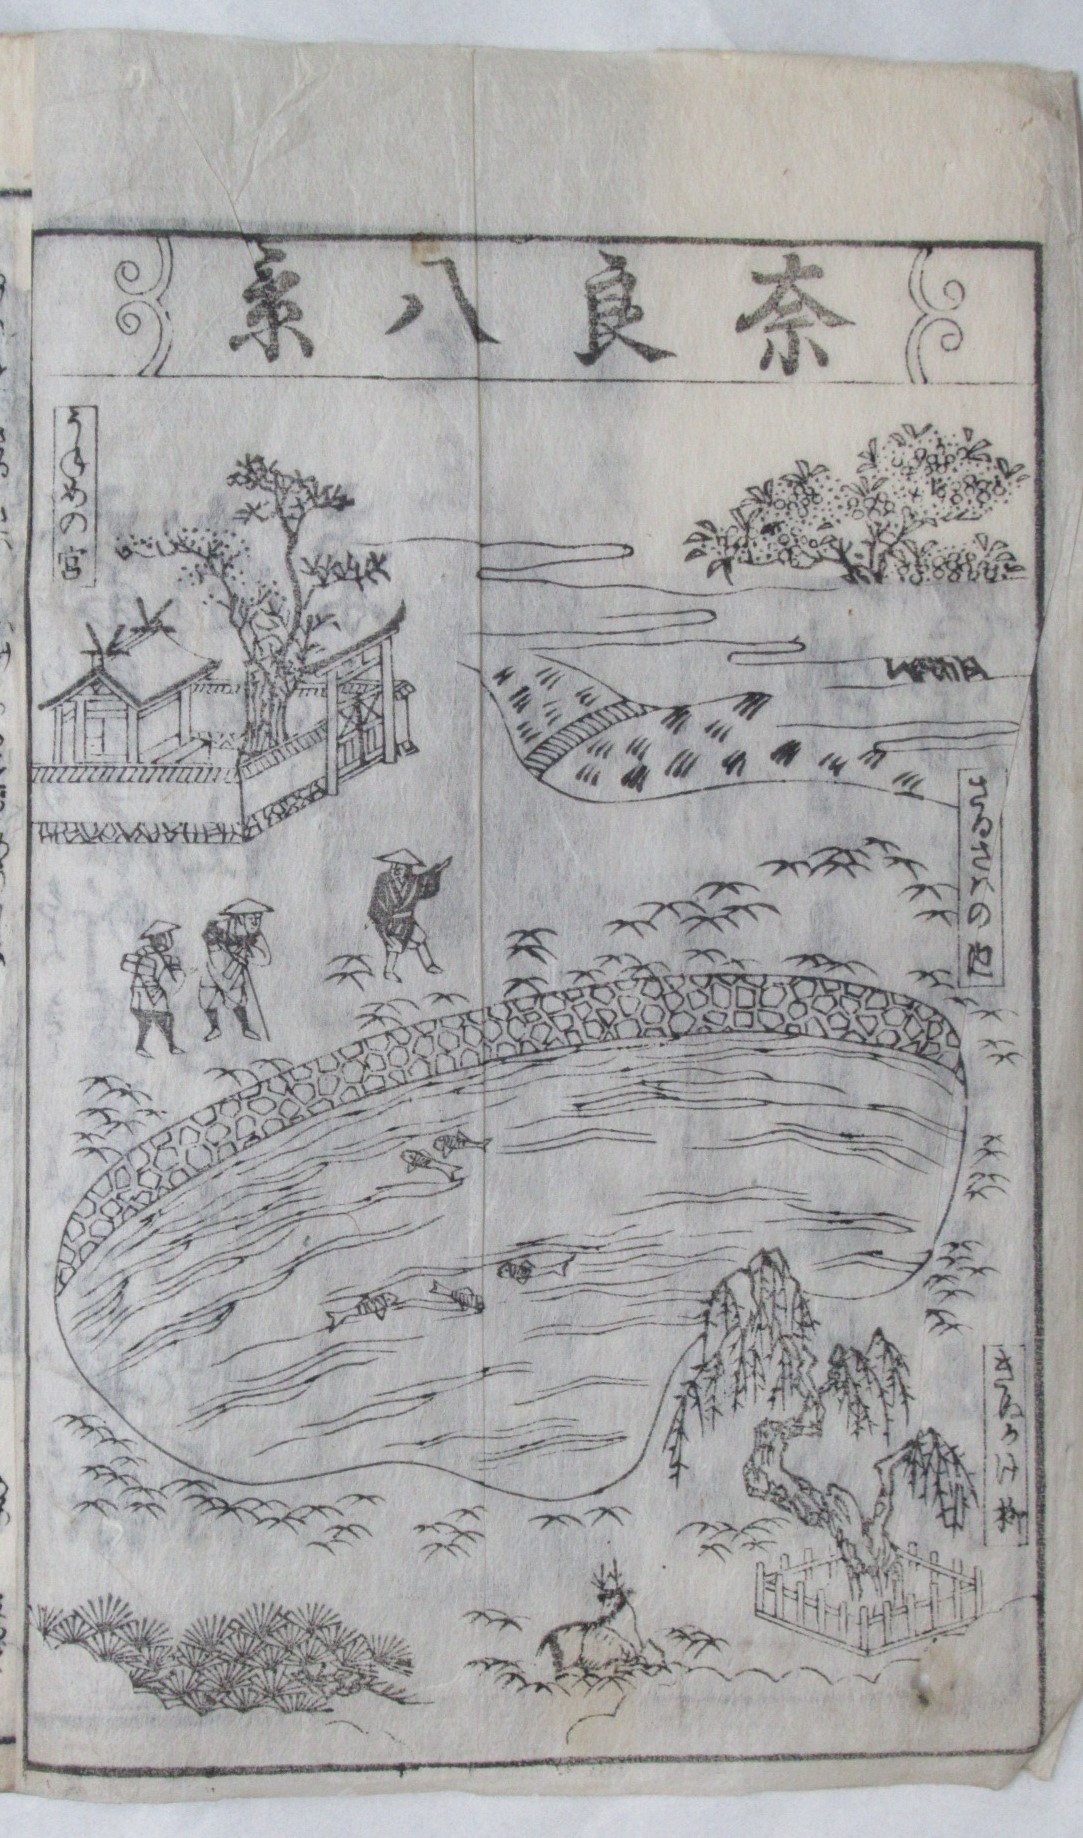 奈良八景
うねめの宮
さるさはの池
きぬかけ柳